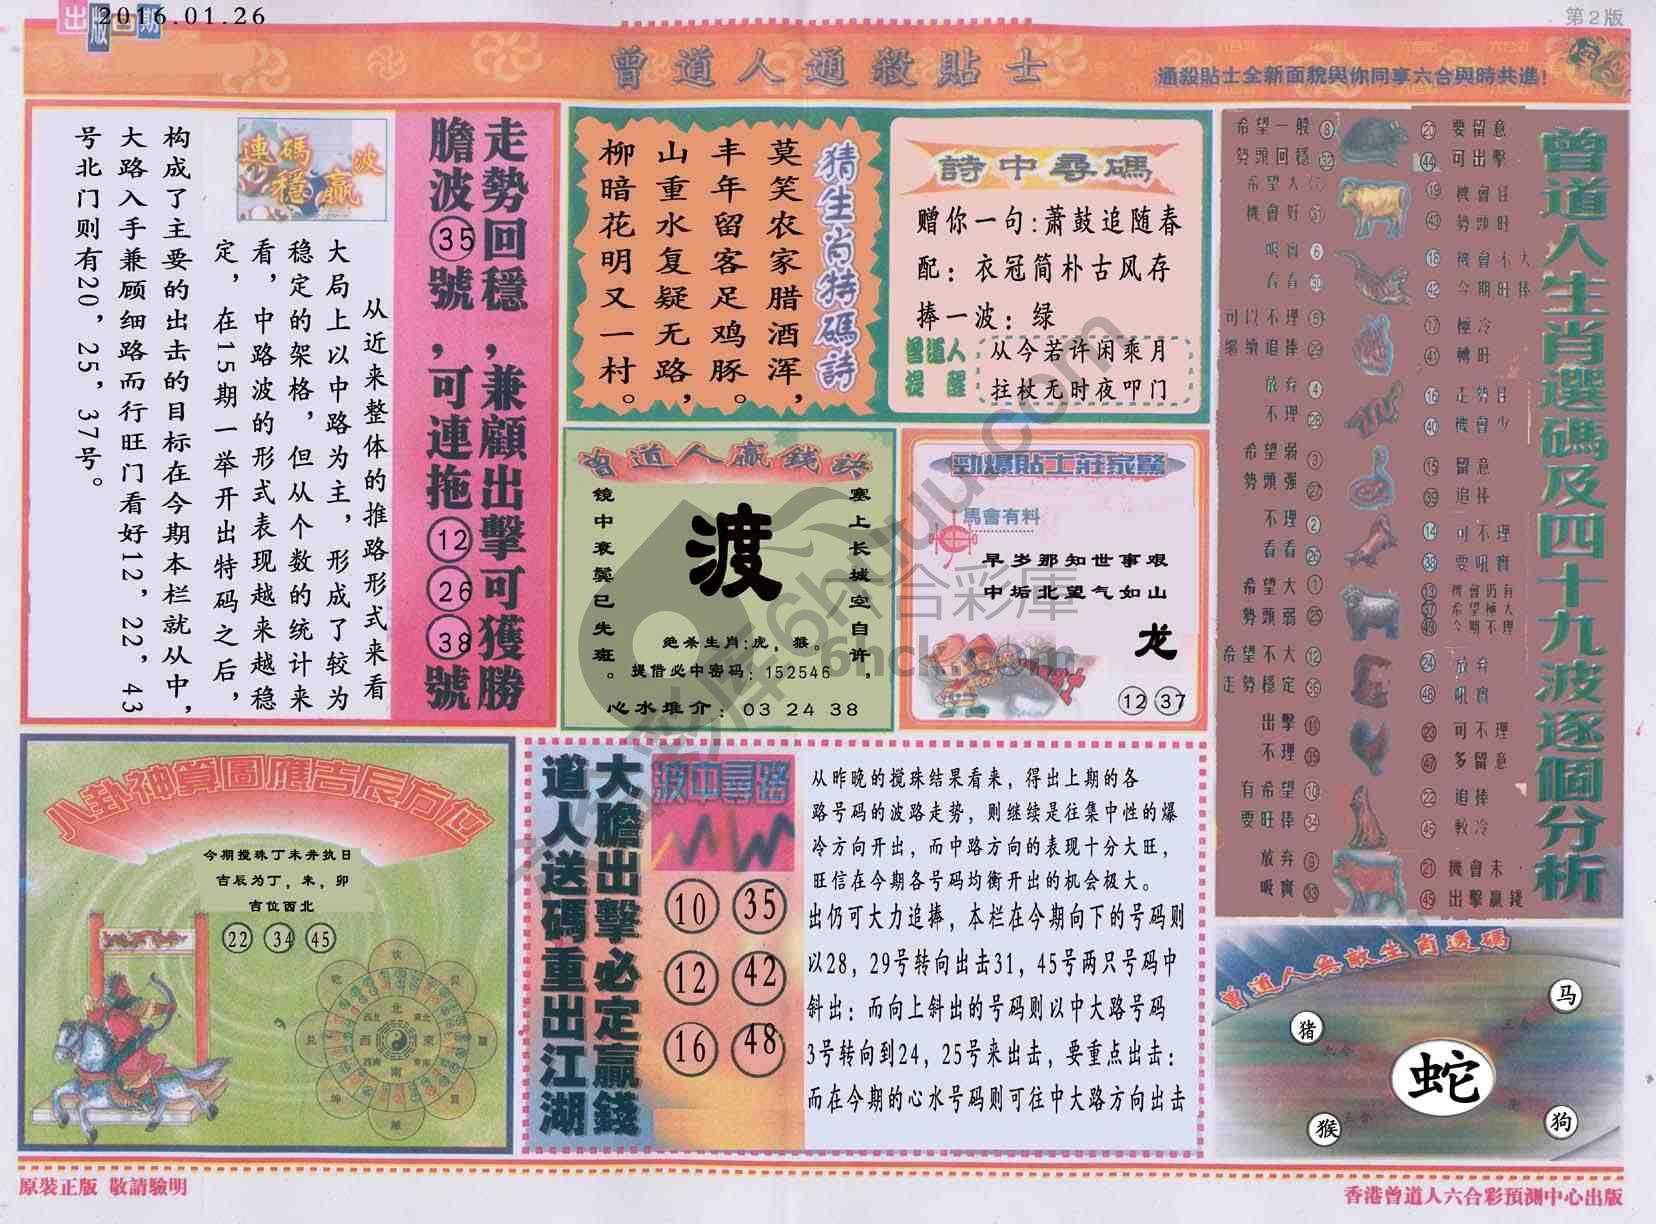 出版日期
2016.01.26
第2版
曾道人通殺貼士
通殺貼士全新面貌與你同享六合與時共進!
走勢回穩,兼顧出擊可獲勝
膽波35號,可連拖12 26 38號
連碼穩贏波
从近来整体的推路形式来看
大局上以中路为主，形成了较为
稳定的架格，但从个数的统计来
看，中路波的形式表现越来越稳
定，在15期一举开出特码之后，
构成了主要的出击的目标在今期本栏就从中，
大路入手兼顾细路而行旺门看好12，22，43
号北门则有20，25，37号。
猜生肖特碼詩
莫笑农家腊酒浑，
丰年留客足鸡豚。
山重水复疑无路，
柳暗花明又一村。
詩中尋碼
赠你一句:萧鼓追随春
配：衣冠简朴古风存
捧一波：绿
曾道人提醒
从今若许闲乘月
拄杖无时夜叩门
曾道人贏錢訣
塞上长城空自许，
镜中衰鬓已先斑。
渡
绝杀生肖:虎，猴。
提借必中密码：152546
心水推介：03 24 38
勁爆貼士莊家驚
馬會有料
早岁那知世事艰
中垢北望气如山
龙
12 37
曾道人生肖選碼及四十九波逐個分析
希望一般 8
勢頭回穩
20 要留意
44 可出擊
希望大
機會好 31
19 機會狂
43 勢頭旺
吸實 6
看看 30
18 機會不大
42 今期旺捧
可以不理 5
繼續追捧 29
17 極冷
41 轉旺
放弃 4
不理 28
16 走勢狂
40 機會少
希望弱 3
勢頭强 27
15 留意
39 追捧
不理 2
看看 26
14 可不理
38 要吸實
希望大 1
勢頭弱 25
13 機會仍有
37 希望極大
49 今期不理
希望不大 12
走勢穩定 36
24 放弃
48 吼實
出擊 11
不理 35
23 可不理
47 多留意
有希望 10
要旺捧 34
22 追捧
45 軟冷
放弃 9
吸實 33
21 機會未
45 出擊贏錢
八卦神算圖應吉辰方位
今期搅珠丁未井执日
吉辰为丁，未，卯
吉位西北
22 34 45
北
東
南
西
大膽出擊必定贏錢
道人送碼重出江湖
波中尋路
10 35
12 42
16 48
从昨晚的搅珠结果看来，得出上期的各
路号码的波路走势，则继续是往集中性的爆
冷方向开出，而中路方向的表现十分大旺，
旺信在今期各号码均衡开出的机会极大。
出仍可大力追捧，本栏在今期向下的号码则
以28，29号转向出击31，45号两只号码中
斜出：而向上斜出的号码则以中大路号码
3号转向到24，25号来出击，要重点出击：
而在今期的心水号码则可往中大路方向出击
曾道人無敵生肖選碼
猪
马
蛇
猴
狗
原裝正版 敬請驗明
香港曾道人六合彩預測中心出版
六合彩庫
6hck.com